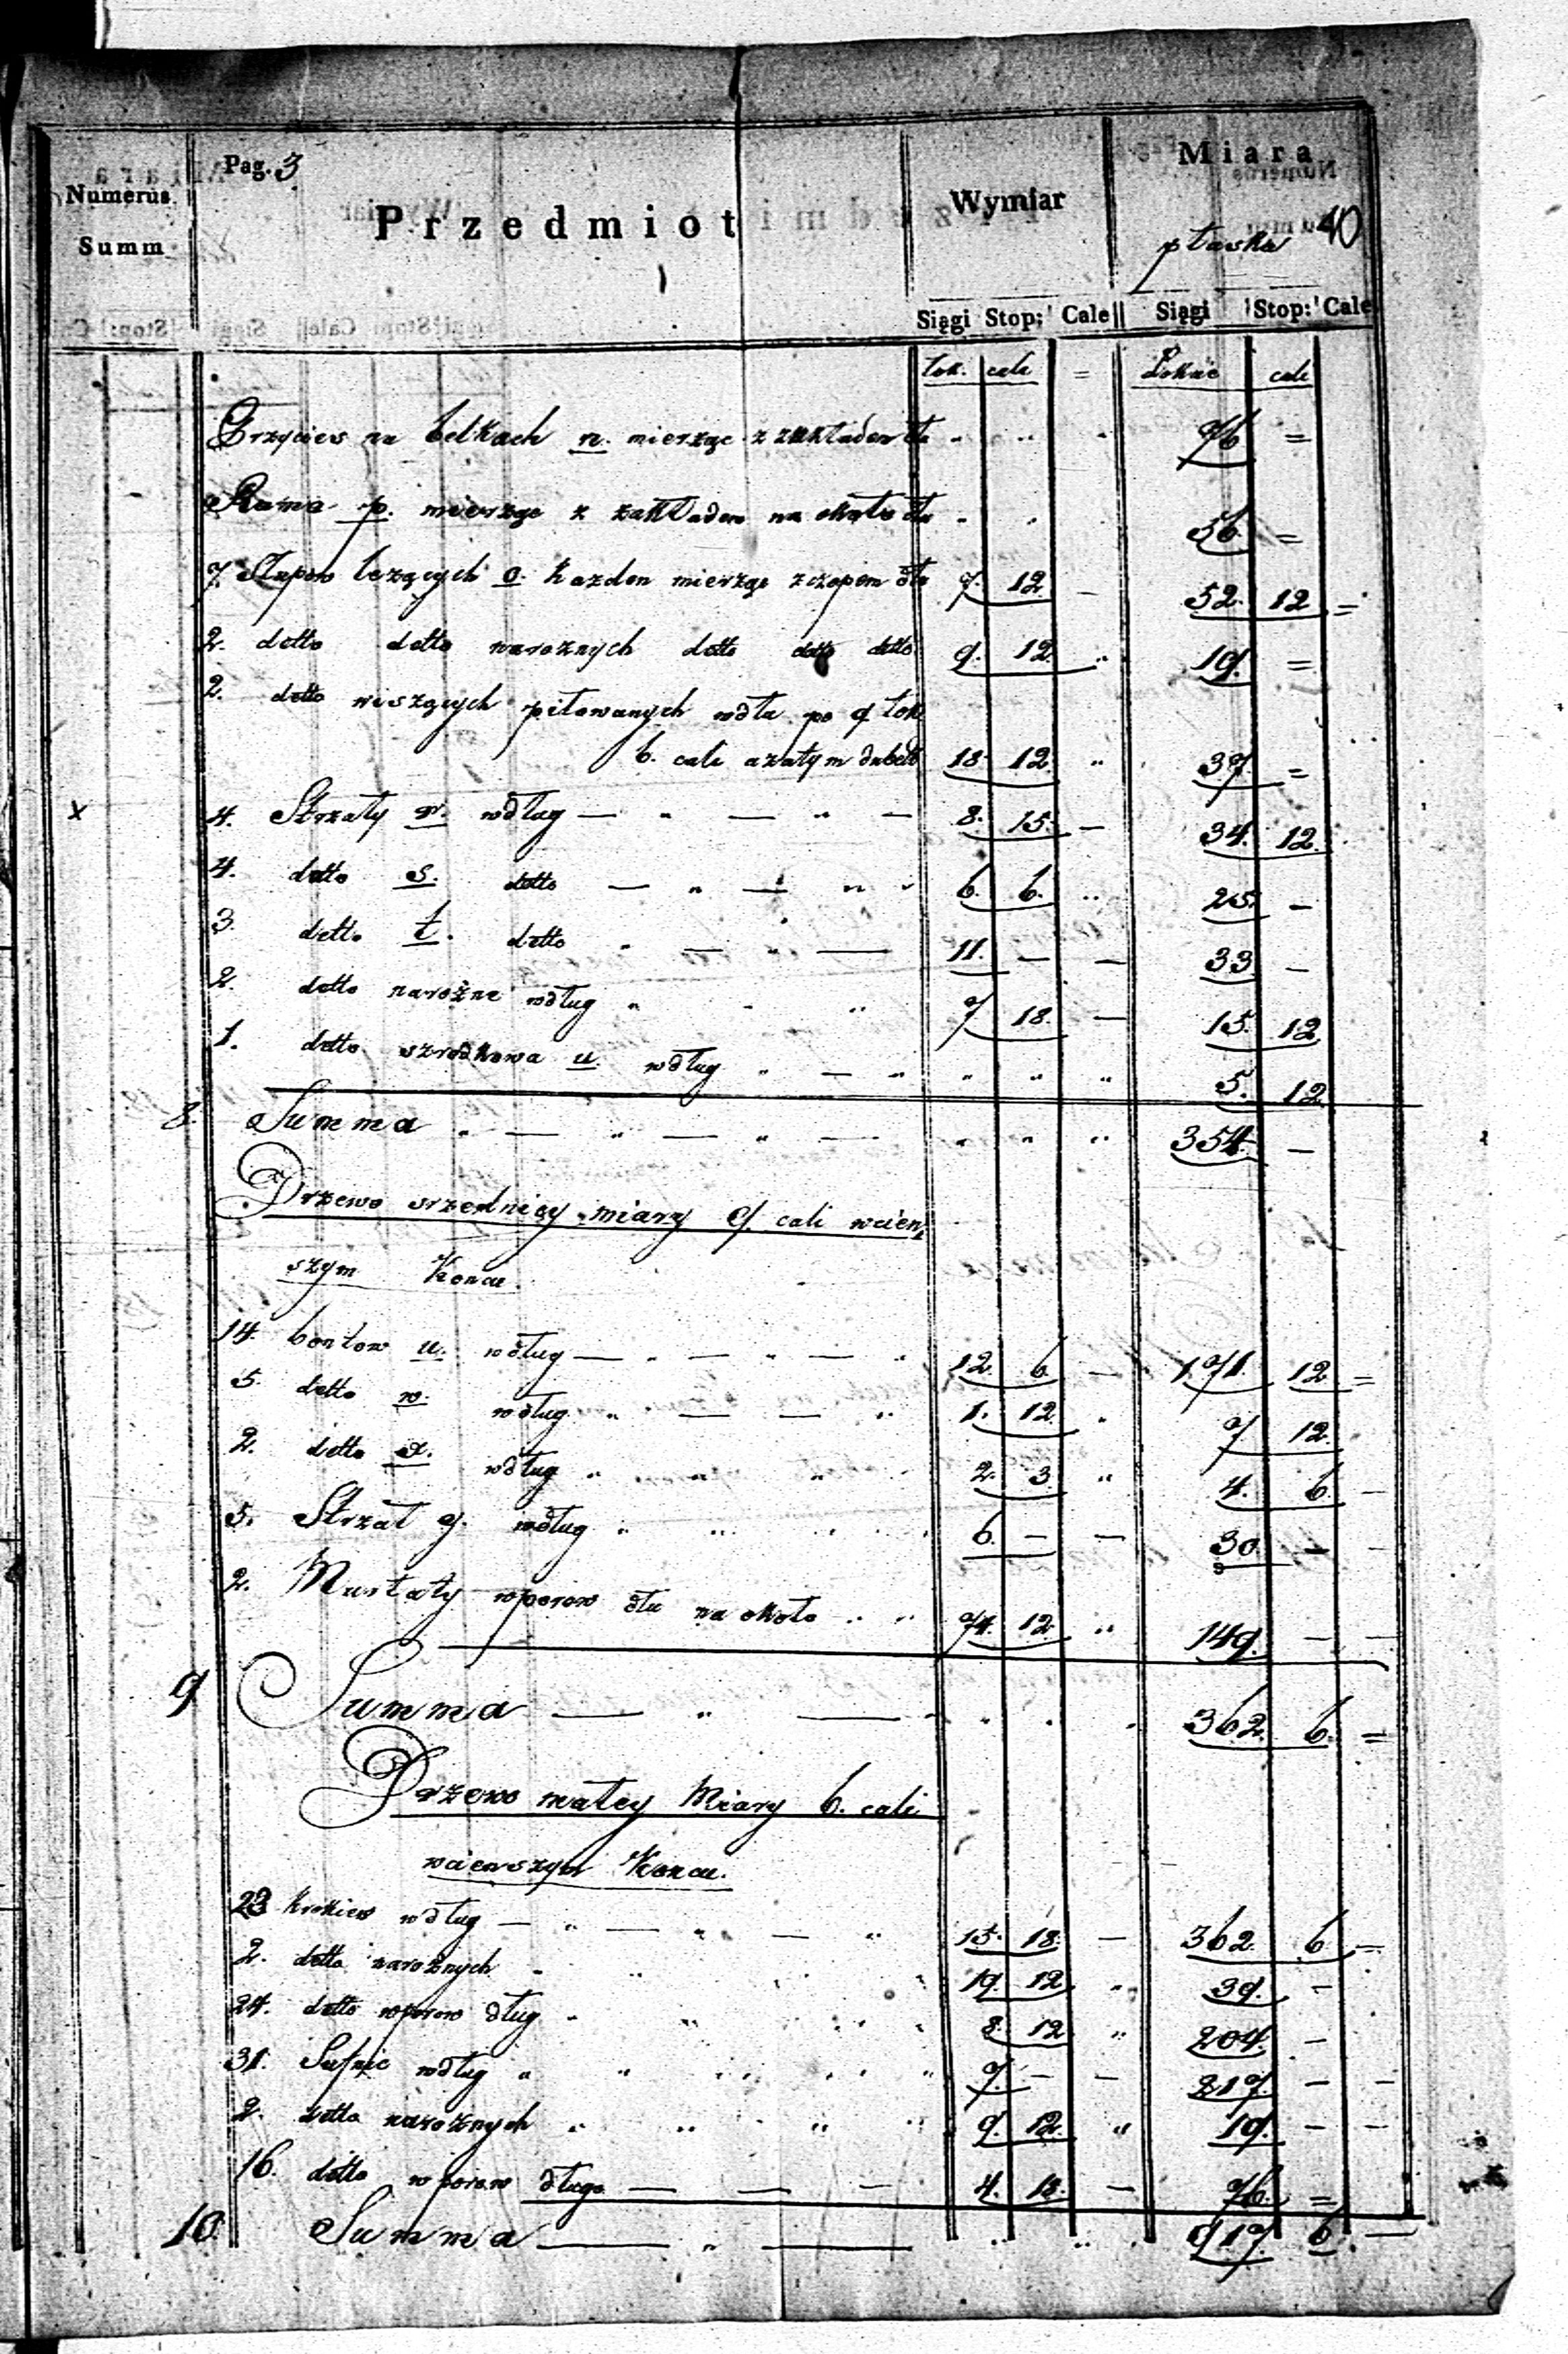 Numerus
Summ
Pag. 3
Przedmiot
Wymiar
Miara
40
płaska
Siągi Stop: Cale Siągi Stop: Cale
łok. cali = Łokcie cali
na belkach n. mierząc z zakładem dła " " " 76 =
Rama p. mierząc z zakładem na około dła " " 56 =
7. Słupow lezących o. kazden mierząc z czopem dła 7. 12 – 52. 12. =
2. detto detto naroznych detto detto detto 9. 12 " 19. =
2. detto wiszących piłowanych wdła po 9 łok
6. cali azatym dubelt 18. 12. " 37. =
x 4. Strzały r. wdług — " — " — 8. 15. – 34. 12.
4. detto s. detto — " — " " 6. 6. " 25. –
3. detto t. detto " — " — 11. – – 33 –
2. detto narożne wdług " " " 7 18. – 15. 12
1. detto szrodkowa u. wdług " — " " " " 5. 12
8. Summa " — " — " — " " " 354. –
Drzewo srzedniey miary 9. cali wcien
szym Koncu.
14. bontow u. wdług — " — " — " 12. 6. – 171. 12. =
5. detto w. wdług " — — " 1. 12. " 7 12.
2. detto x. wdług " " " " 2. 3. " 4. 6. –
5. Strzał y. wdług " " " " 6. – – 30. –
2. Murłaty wporow dła na około " " 74. 12. " 149. – –
9 Summa — " — " " " 362. 6. =
Drzewo małey Miary 6. cali
wcienszym Koncu.
23 krokiew wdług — " — " — " 15. 18. – 362. 6 =
2. detto naroznych " " " " " 19. 12 " 39. –
24. detto wporow dług " " " " 8. 12 " 204. –
31. wdług " " " " " 7. – – 217. – –
2. detto naroznych " " " " 9. 12. " 19. – –
16. detto wporow długo — — — 4. 18. – 76. =
10. Summa — " — " " 917. 6. —